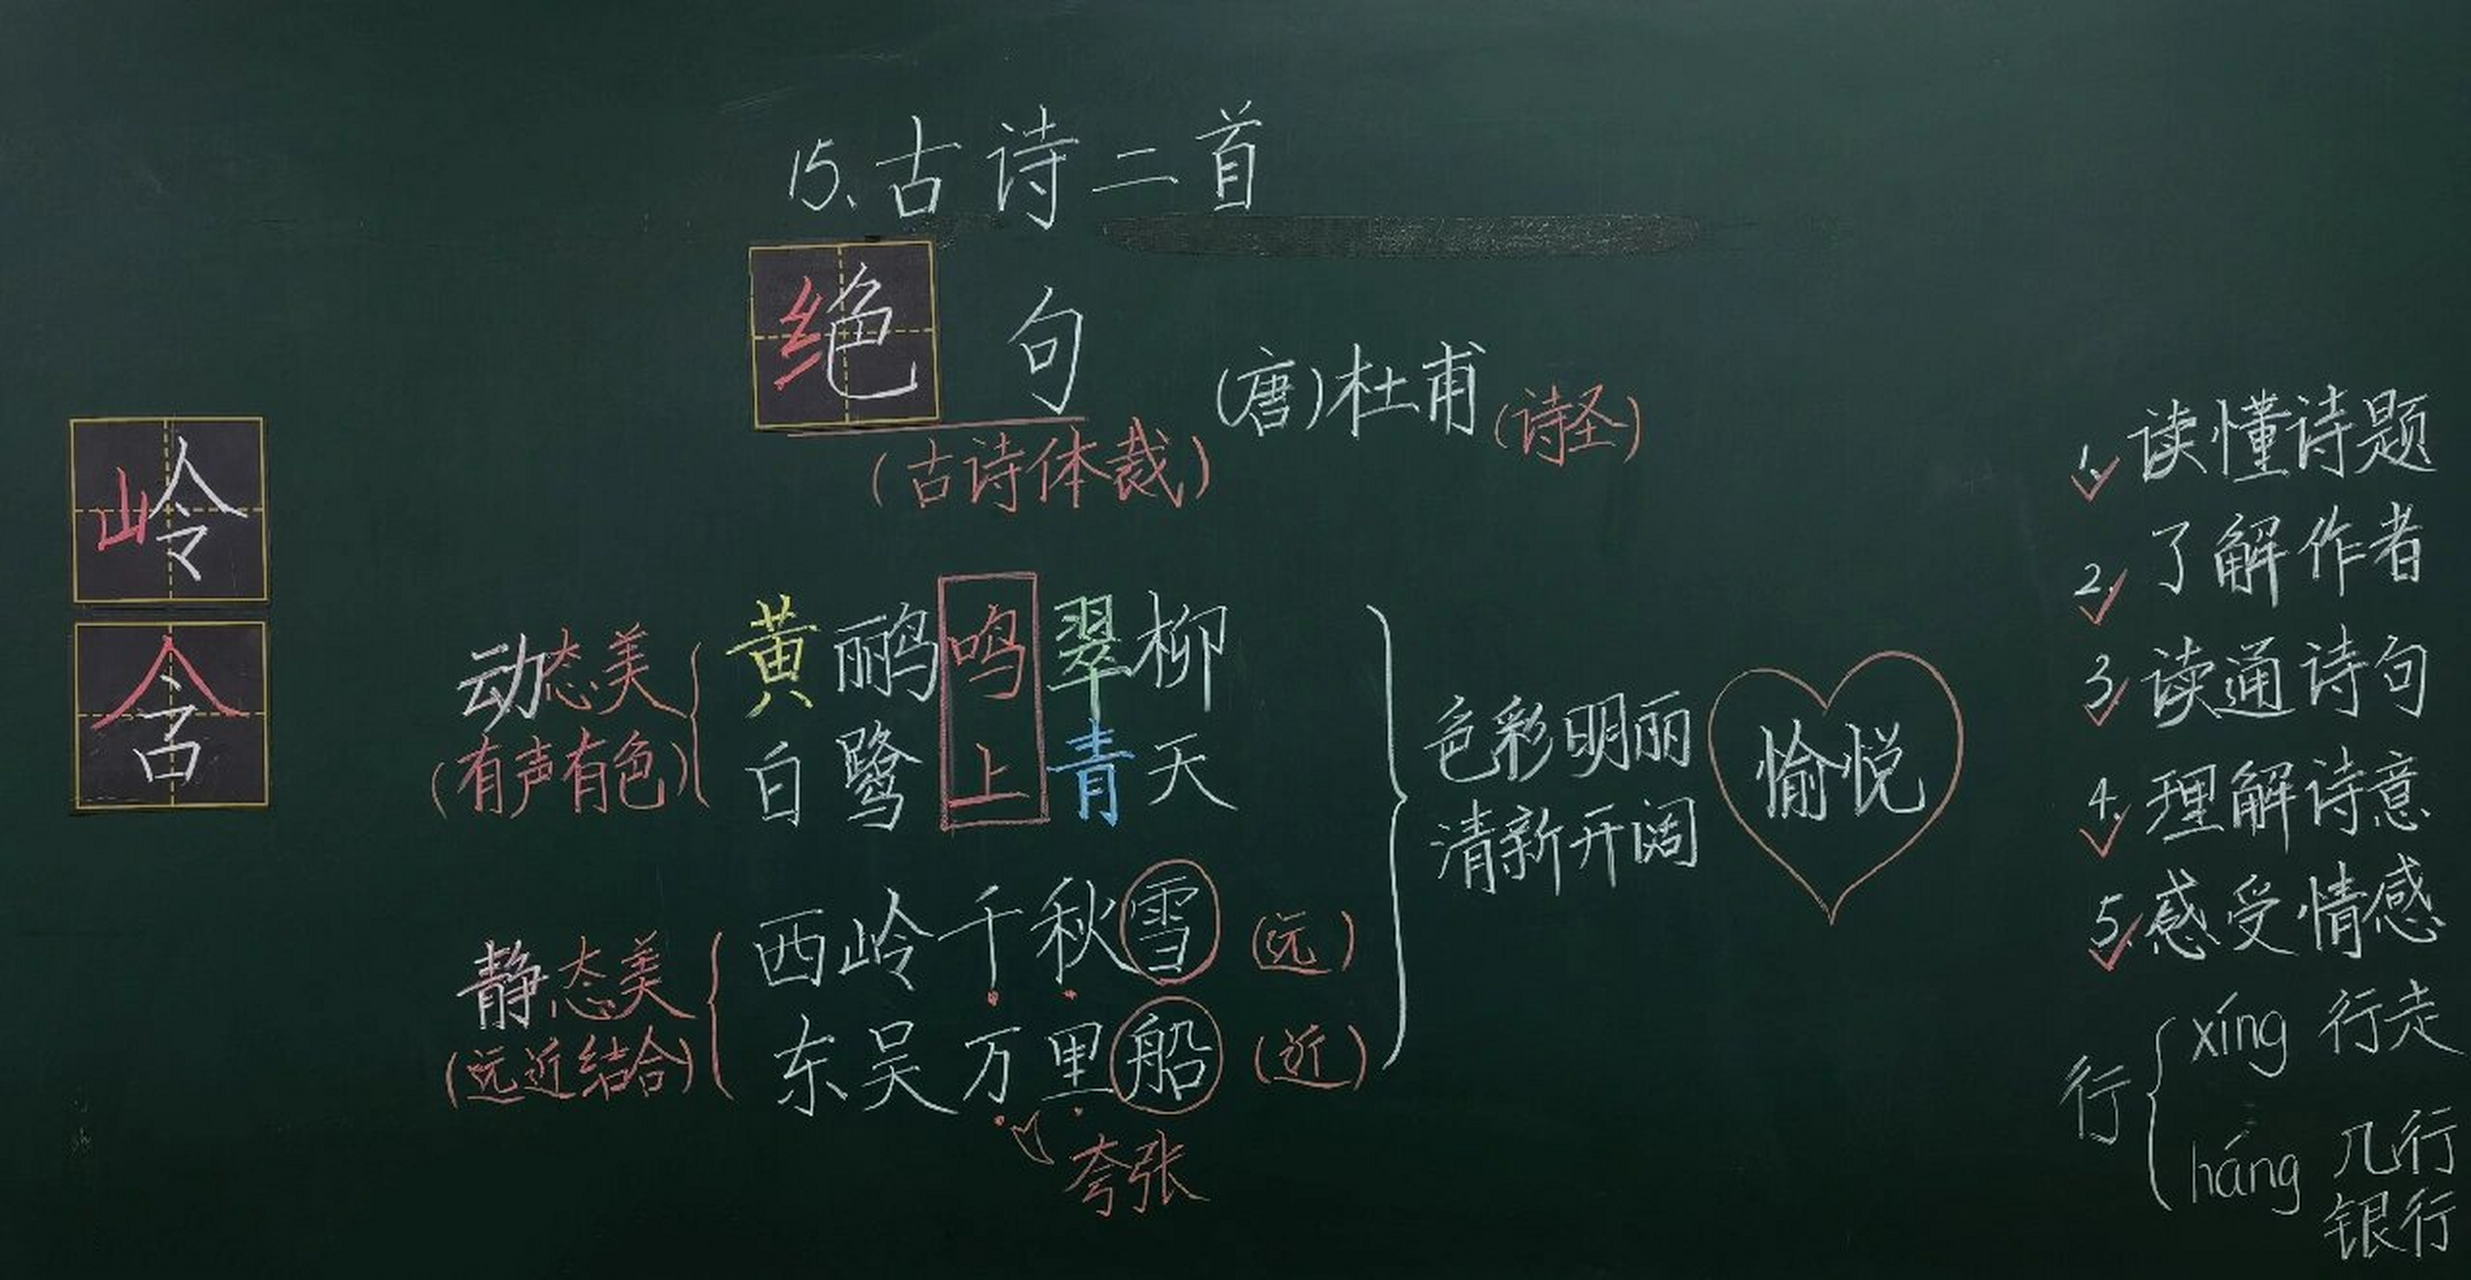 15、古诗二首
绝句
(唐)杜甫(诗圣)
(古诗体裁)
岭
含
动态美
(有声有色)
黄鹂鸣翠柳
白鹭上青天
静态美
(远近结合)
西岭千秋雪(远)
东吴万里船(近)
夸张
色彩明丽
清新开阔
愉悦
1.读懂诗题
2.了解作者
3.读通诗句
4.理解诗意
5.感受情感
行
xíng 行走
háng 几行
银行